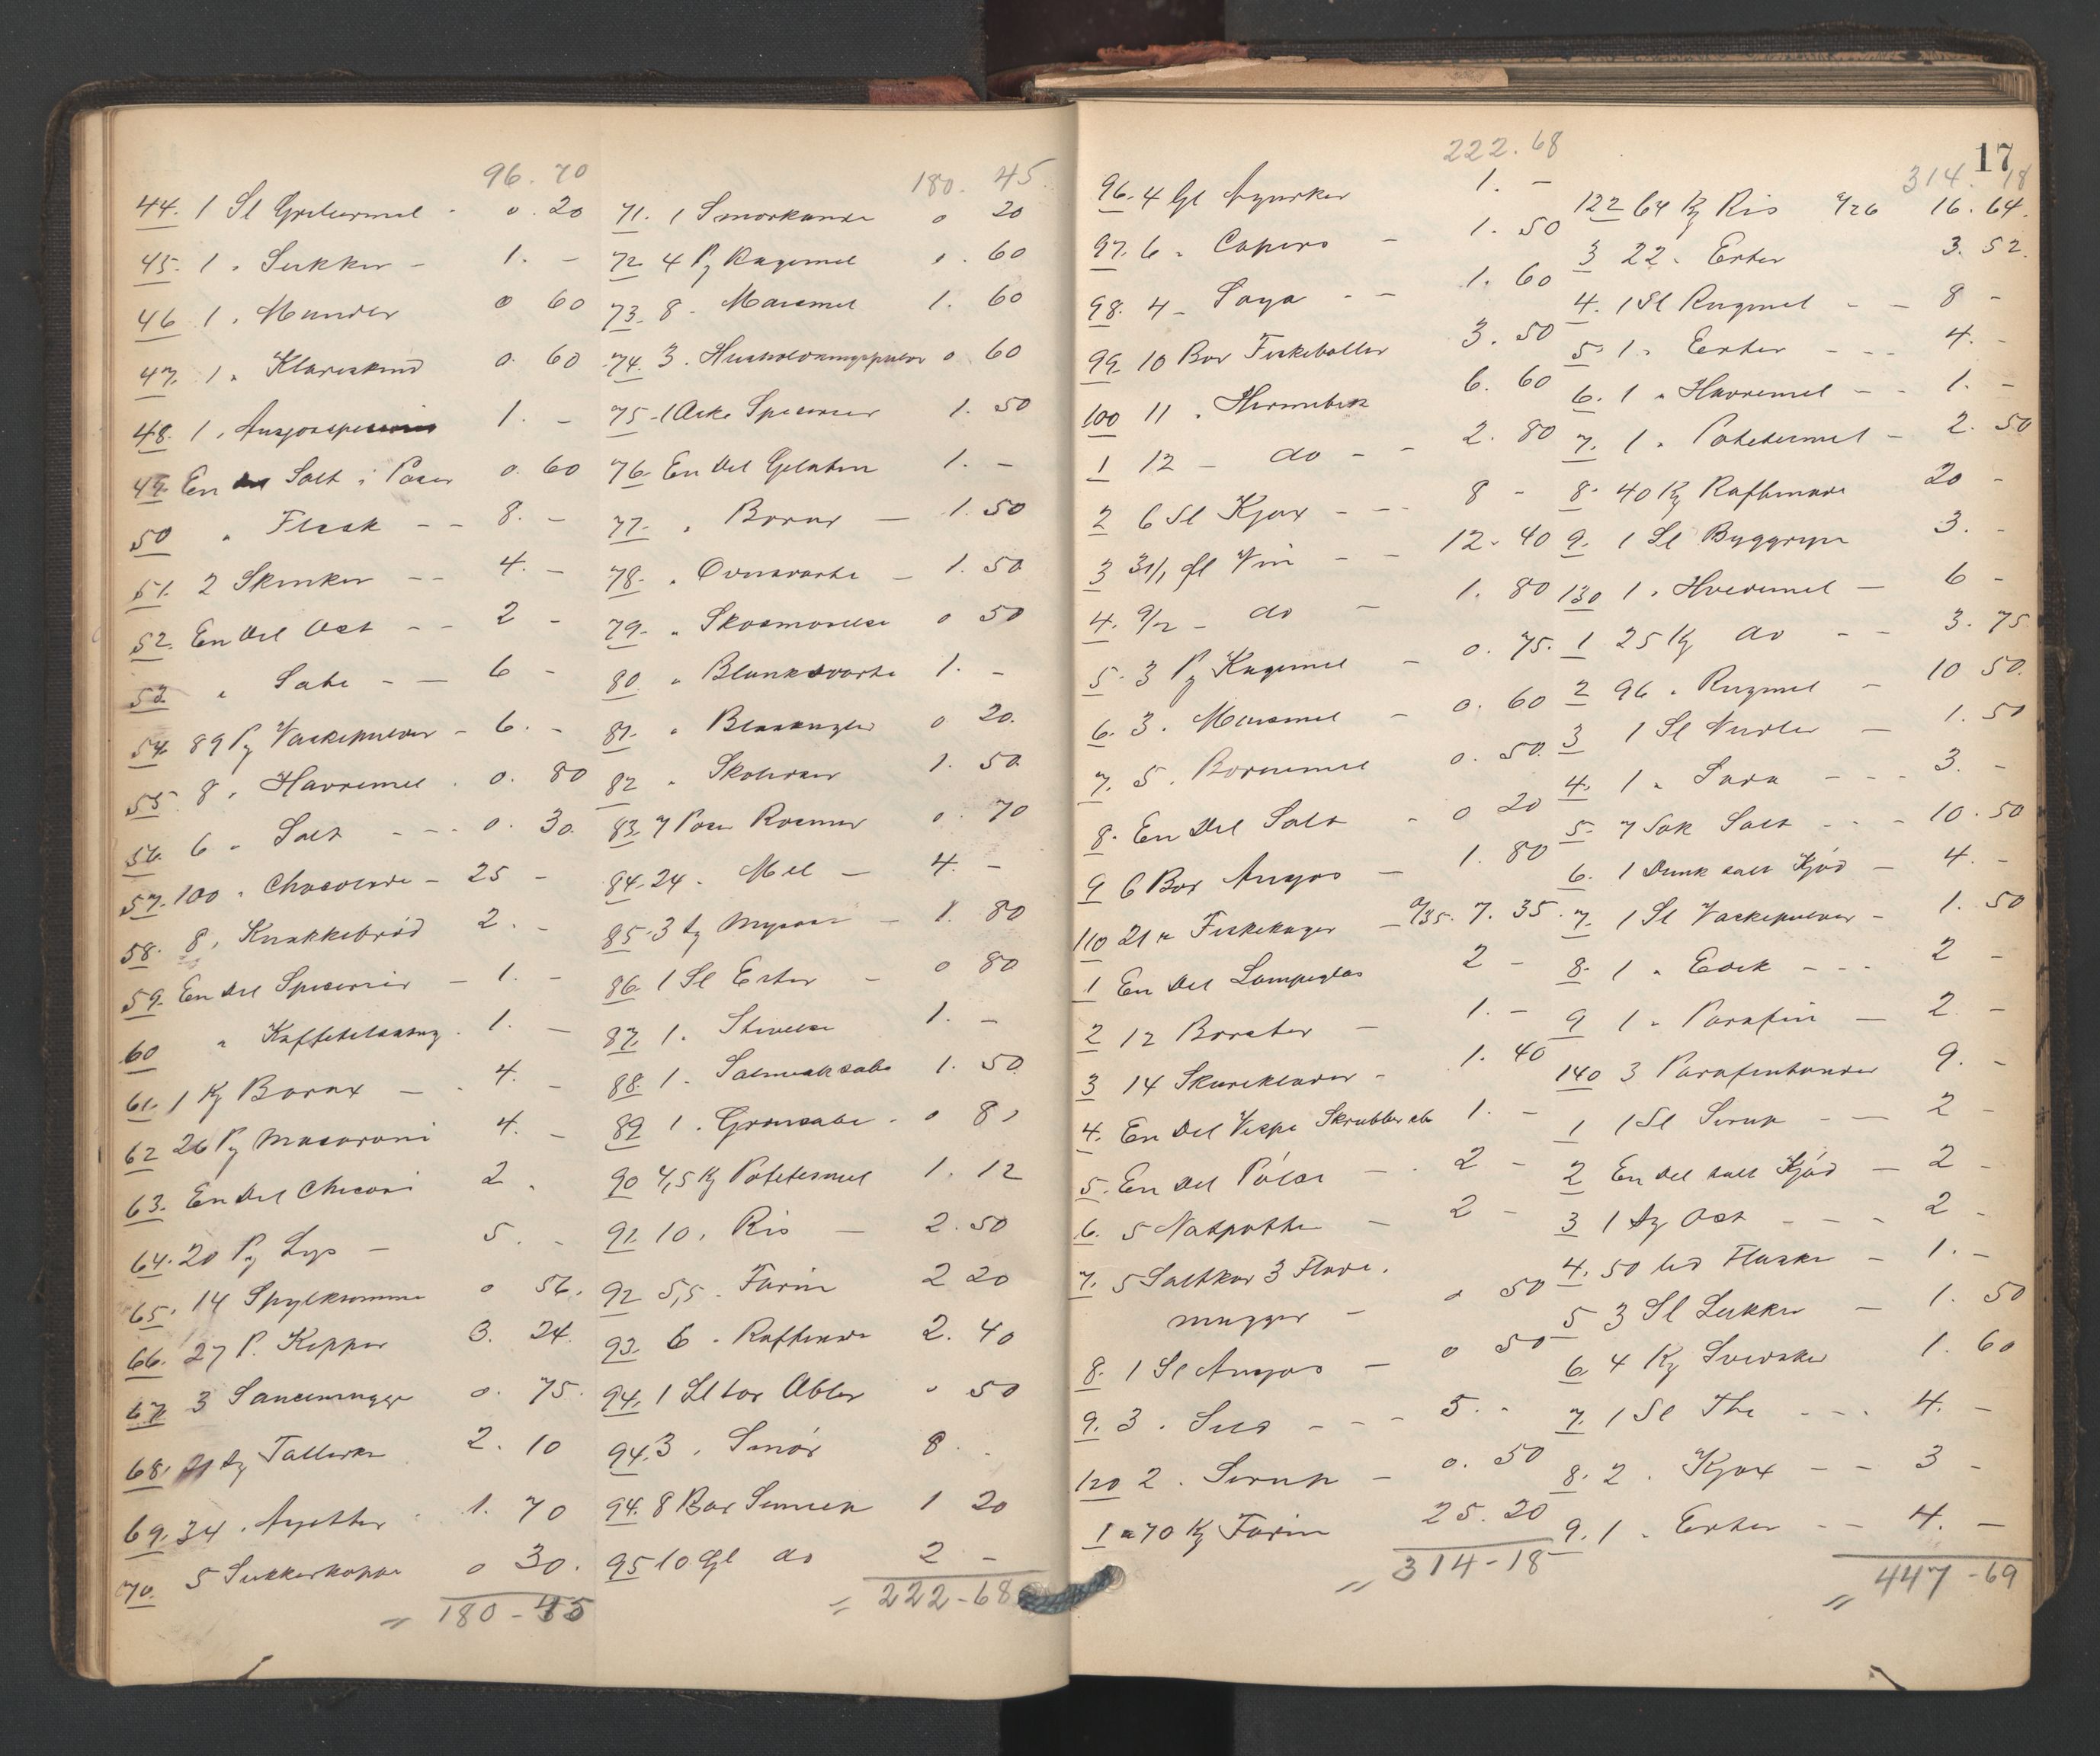 96.70
44. 1 Sl
o. 20
45. 1 " Sukker - 1. -
46 1 " Mandler o 60
47. 1 " o. 60
48. 1 " 1. -
49. En Salt i Poser o. 60
50 " Flesk - - 8. -
51. 2 Skinker - - 4. -
52. En Del Ost - - 2 -
53. " Sæbe - - 6 -
54. 89 Pg Vaskepulver - 6. -
55. 8 " Havremel . o. 80
56. 6 " Salt - - - o. 30.
57. 100 " Chocolade - 25 -
58. 8 " Knækkebrød 2. -
59. En Del Specerier - 1. -
60 " 1. -
61. 1 Kg Borax - - 4. -
62 26 Pg Macaroni 4. -
63. En Del Chicori 2 .
64. 20 Pg Lys - 5. -
65. 14 o 56.
66. 27 P. Kopper 3. 24.
67. 3 Saucemugger o. 75.
68. 21 Tallerker 2. 10
69. 34 " Asjetter 1. 70
70. 5 Sukkerkopper o 30.
= 180-45
180. 45.
71. 1 Smørkande o 20
72. 4 Pg Kagemel 1. 60
73. 8 - Maismel 1. 60
74. 3. Husholdningspulver o 60
75. 1 Æske Specerier 1. 50
76. En Del Gelatin 1. -
77. " Borax - 1. 50
78. " Ovnsværte - 1. 50
79. " Skosmørelse o 50
80. " Blanksværte 1. -
81. " Blaakugler o 20.
82 " 1. 50
83. 7 Poser Rosiner o. 70
84. 24 - Mel - 4. -
85. 3 Mysost - 1. 80
86. 1 Sl Erter - o 80
87. 1. Stivelse 1. -
88. 1 - Salmiaksæbe 1. 50
89 1 . Grønsæbe . o 80
90 4,5 Kg Potetesmel 1. 12
91. 10. Ris - 2. 50
92 5,5 . Farin 2 20
93. 6 . Raffinade 2. 40
94. 1 Sl tør Æbler o 50
94. 3 . Smør 8 . -
94. 8 Bx Sennep 1 20
95 10 Gl do 2 -
= 222-68
222.68
96. 4 Gl Agurker 1. -
97. 6 " Capers - 1. 50
98. 4 - Soya - - 1. 60
99. 10 Bx Fiskeboller 3. 50
100 11 . 6. 60
1 12 - do - - 2. 80
2 6 Sl Kjax - - - 8 -
3 31/1 fl Vin - - 12. 40
4. 9/2 - do - 1. 80
5. 3 Pg Kagemel - o. 75.
6. 3. Maismel - o. 60
7. 5. Børnemel o. 50.
8. En Del Salt - o 20
9 6 Bx Ansjos - 1. 80
110 21 " Fiskekager - a/35. 7. 35.
1 En Del Lampeglas 2 -
2 12 Børster - 1. -
3 14 Skureklæder - 1. 40
4. En Del Visper Skrubber etc 1. -
5. En Del Pølse - . 2 -
6. 5 Natpotter - 2 -
7. 5 Saltkar 3 Fløde.
mugger - o 50
8. 1 Sl Ansjos - o 50
9. 3 . Sild - - - 5. -
120 2 . Sirup - o. 50
1 a 70 Kg Farin 25. 20
= 314-18
17
314. 18
122 64 Kg Ris a/26 16. 64.
3 22 - Erter 3. 52.
4. 1 Sl Rugmel - - 8 -
5. 1 " Erter - - - 4. -
6. 1 " Havremel - - 1. -
7. 1 " Potetesmel - 2. 50
8. 40 Kg Raffinade 20 -
9. 1 Sl Byggryn 3. -
130 1 . Hvedemel - 6 -
1 25 Kg do - - 3. 75
2 96 " Rugmel - 10 50.
3 1 Sl Nudler - 1. 50
4. 1 " Soda - - - 3. -
5. 7 Sæk Salt - - - 10. 50
6. 1 Dunk salt Kjød - 4. -
7. 1 Sl Vaskepulver - 1. 50
8. 1 " Edik - - - 2 -
9 1 " Parafin - 2 -
140 3 Parafintønder 9. -
1 1 Sl Sirup - - 2 -
2 En Del salt Kjød - 2 -
3 1 Ost - - - 2 -
4. 50 Flasker - 1. -
5 3 Sl Sukker - 1. 50
6 4 Kg Svedsker 1. 60
7. 1 Sl The - - - 4. -
8. 2 . Kjax - - 3 -
9. 1 . Erter - - 4. -
= 447-69